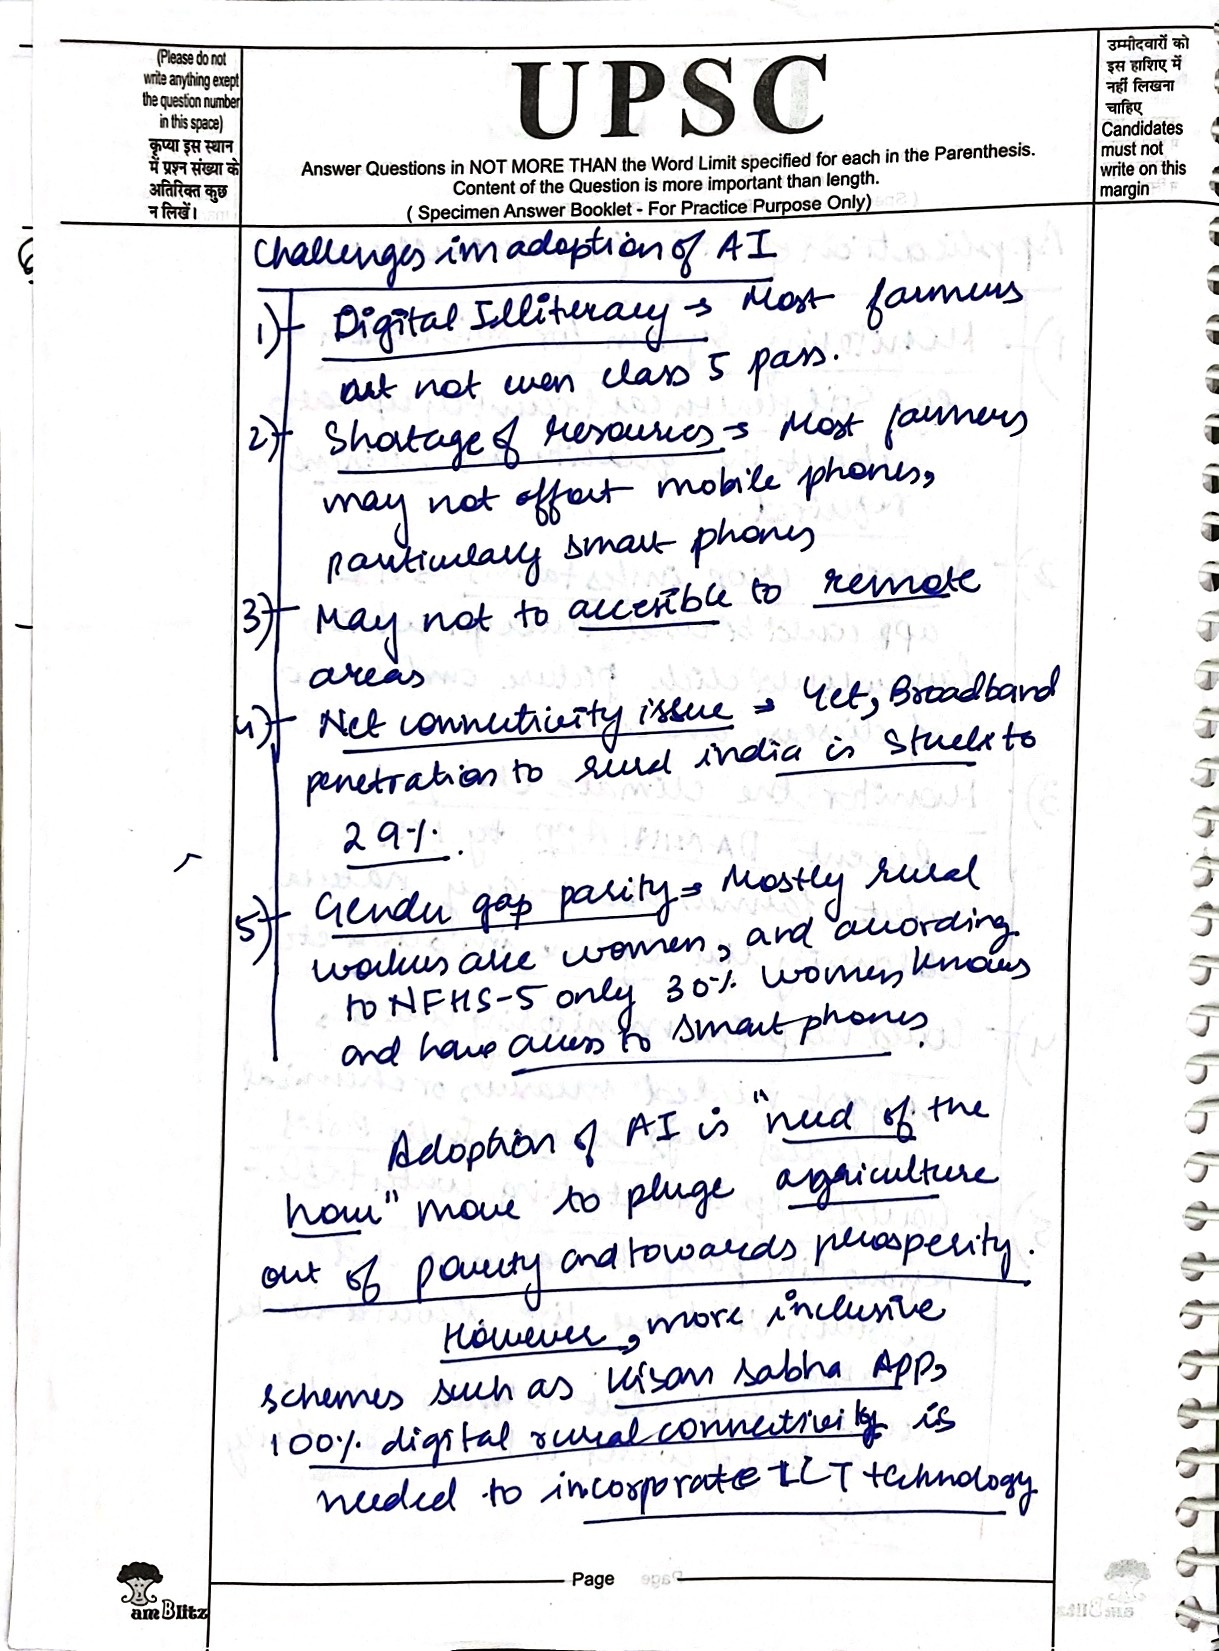 (Please do not
write anything exept
the question number
in this space)
कृप्या इस स्थान
में प्रश्न संख्या के
अतिरिक्त कुछ
न लिखें।
UPSC
Answer Questions in NOT MORE THAN the Word Limit specified for each in the Parenthesis.
Content of the Question is more important than length.
( Specimen Answer Booklet - For Practice Purpose Only)
उम्मीदवारों को
इस हाशिए में
नहीं लिखना
चाहिए
Candidates
must not
write on this
margin
Challenges in adoption of AI
1) Digital Illiteracy → Most farmers
are not even class 5 pass.
2) Shortage of resources → Most farmers
may not affort mobile phones,
particulary smart phones
3) May not to accesible to remote
areas
4) Net connectivity issue → Yet, Broadband
penetration to rural india is stuck to
29%.
5) Gender gap parity → Mostly rural
workers are women, and according
to NFHS-5 only 30% women knows
and have access to smart phones.
Adoption of AI is "need of the
hour" move to pluge agriculture
out of poverty and towards prosperity.
However, more inclusive
schemes such as Kisan sabha App,
100% digital rural connectivity is
needed to incorporate ICT technology
Page
am Blitz